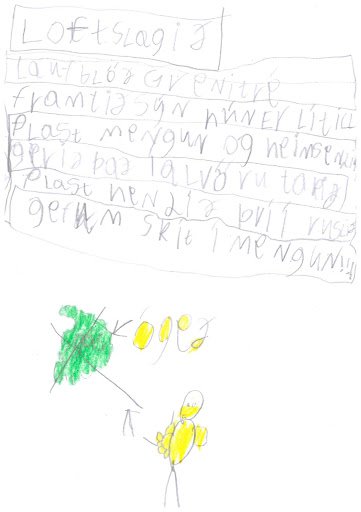 Loftslagið
Laufblöð Grenitré
framtíðsýn hún er lítil
Plast mengun og heinsenum
gerið það í alvöru takk
Plast hendið þríf rusl
gerum skít í mengun
ógeð